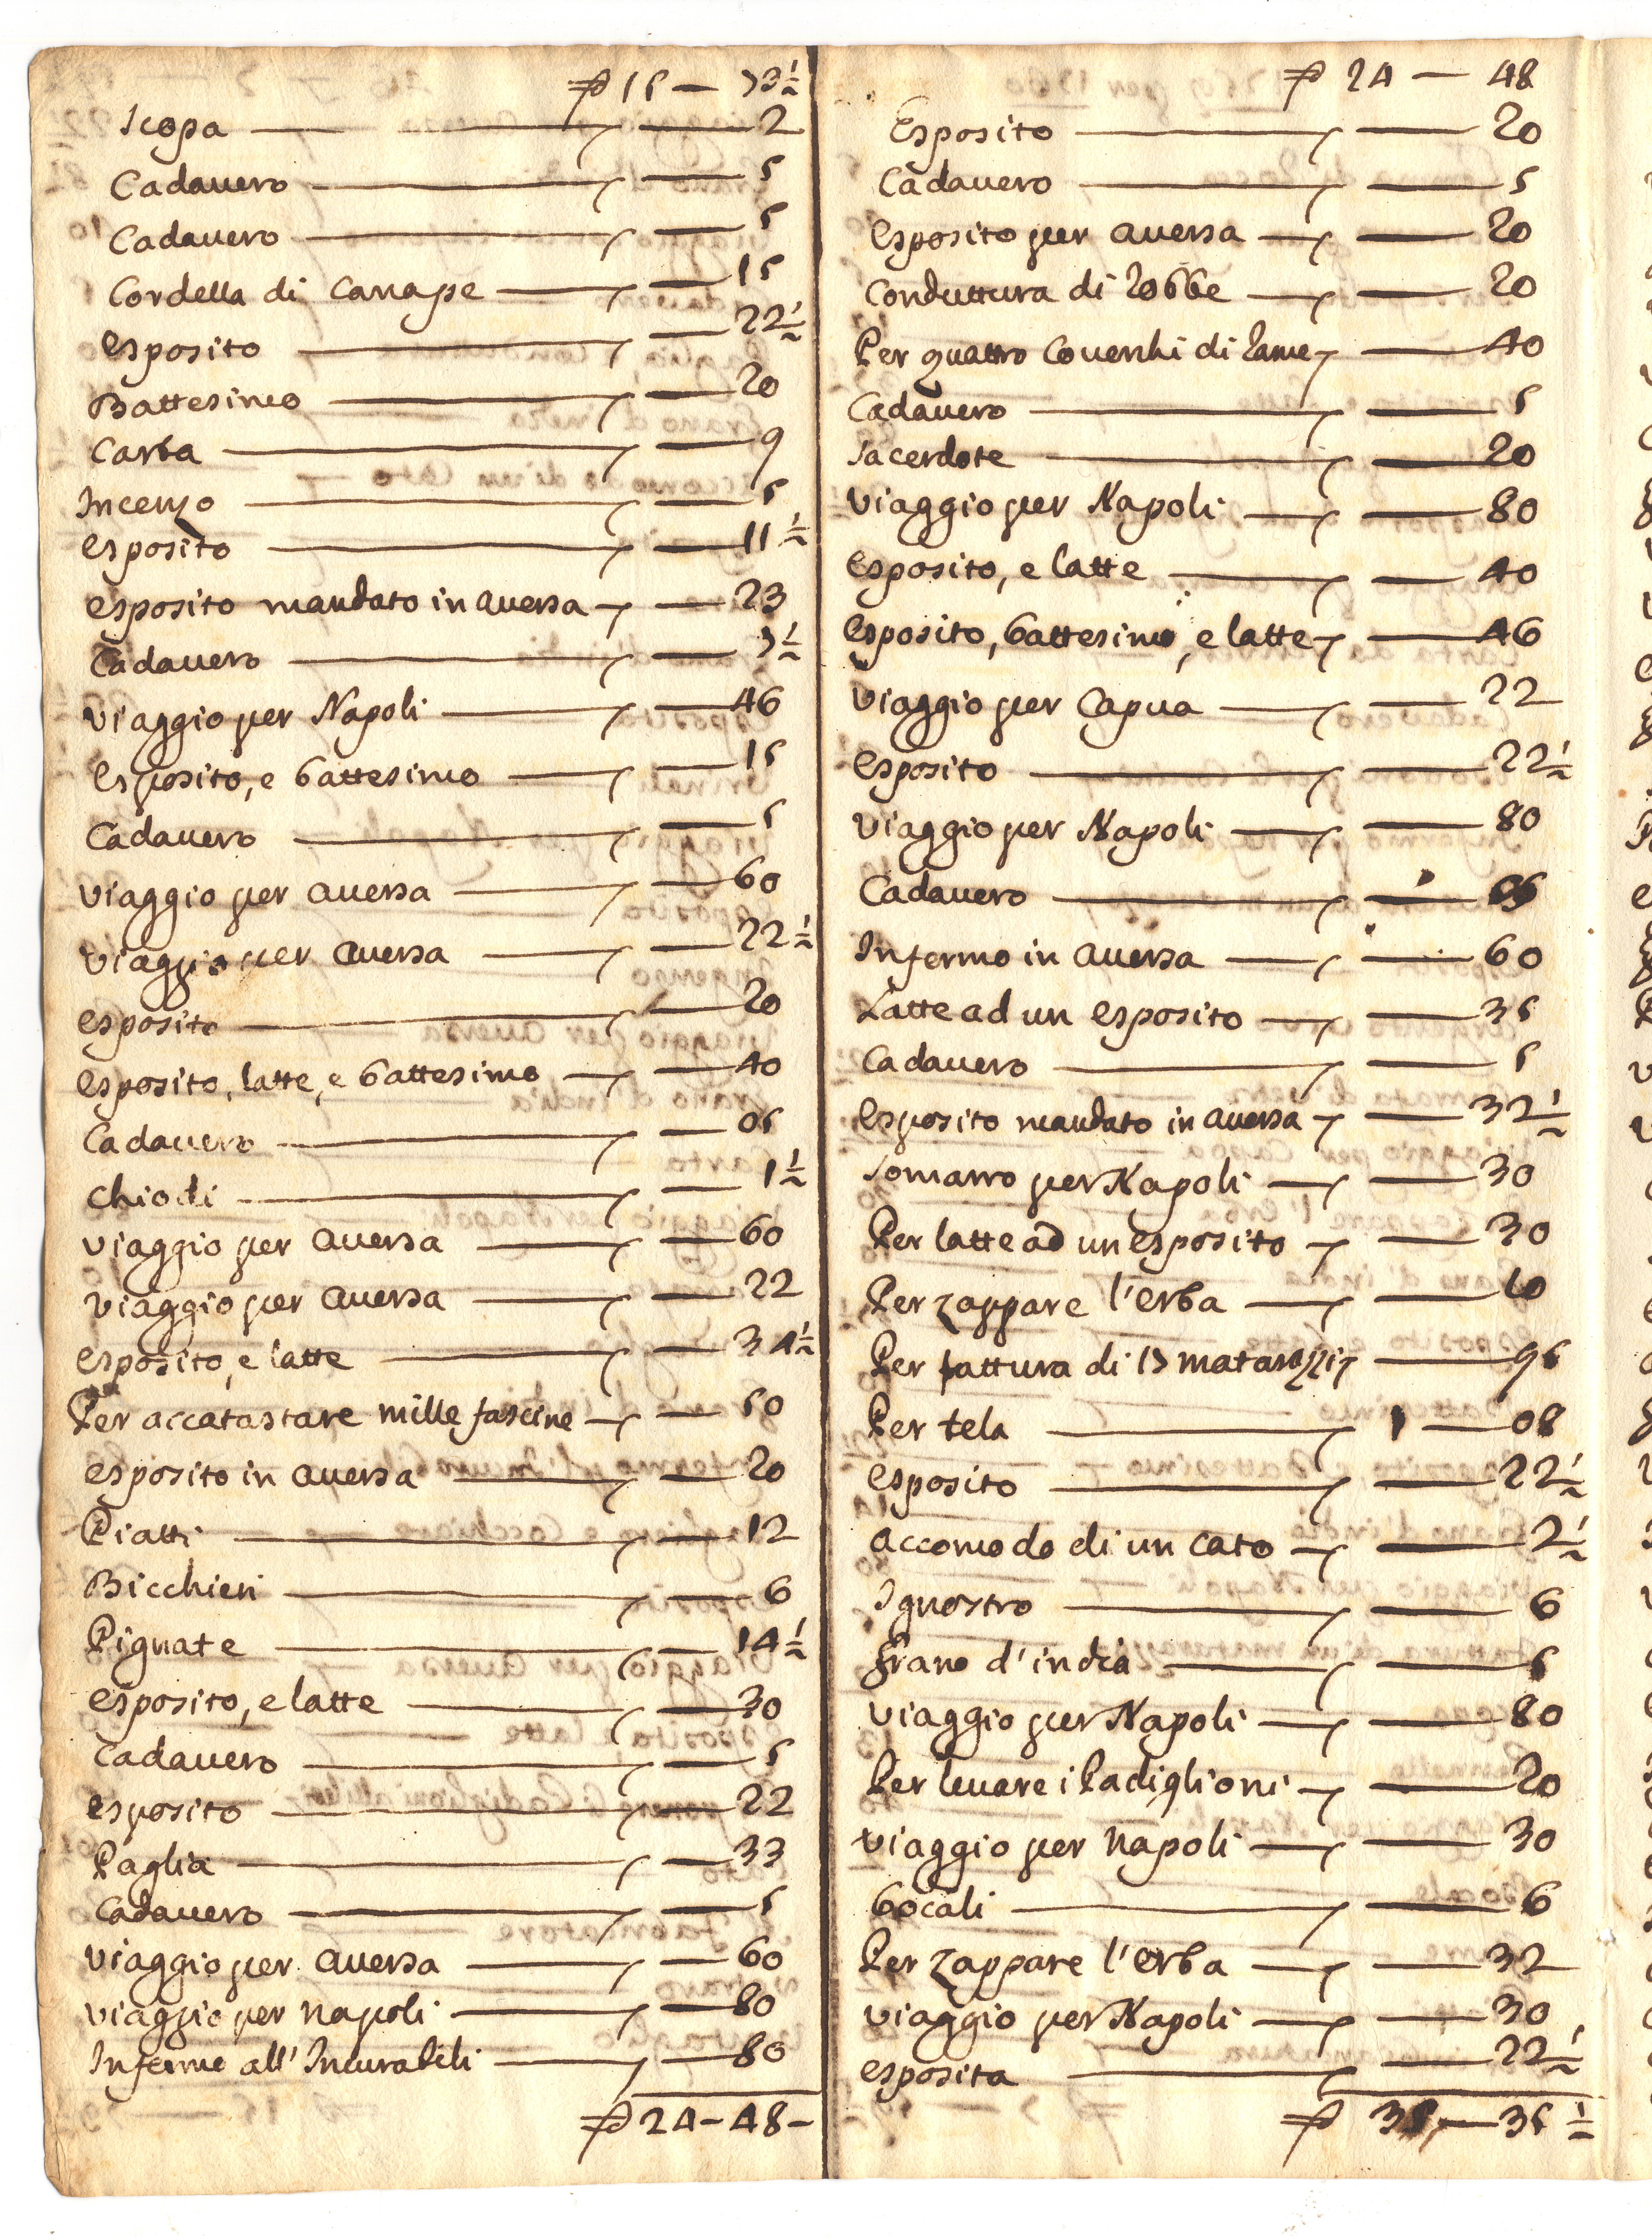 ₽ 15 — 73½
Scopa — 2
Cadavero — 5
Cadavero — 5
Cordella di Canape — 15
Esposito — 22½
Battesimo — 20
Carta — 9
Incenzo — 5
Esposito — 11½
Esposito mandato in Aversa — 23
Cadavero — 7½
Viaggio per Napoli — 46
Esposito, e battesimo — 15
Cadavero — 5
Viaggio per Aversa — 60
Viaggio per Aversa — 22½
Esposito — 20
Esposito, latte, e battesimo — 40
Cadavero — 05
Chiodi — 1½
Viaggio per Aversa — 60
Viaggio per Aversa — 22
Esposito, e latte — 34½
Per accatastare mille fascine — 50
Esposito in Aversa — 20
Piatti — 12
Bicchieri — 6
Pignate — 14½
Esposito, e latte — 30
Cadavero — 5
Esposito — 22
Paglia — 33
Cadavero — 5
Viaggio per Aversa — 60
Viaggio per Napoli — 80
Infermo all'Incurabili — 80
₽ 24 — 48 —
₽ 24 — 48
Esposito — 20
Cadavero — 5
Esposito per Aversa — 20
Conduttura di robbe — 20
Per quattro Coverchi di rame — 40
Cadavero — 5
Sacerdote — 20
Viaggio per Napoli — 80
Esposito, e latte — 40
Esposito, battesimo, e latte — 46
Viaggio per Capua — 22
Esposito — 22½
Viaggio per Napoli — 80
Cadavero — 05
Infermo in Aversa — 60
Latte ad un Esposito — 35
Cadavero — 5
Esposito mandato in Aversa — 32½
Somarro per Napoli — 30
Per latte ad un esposito — 30
Per zappare l'erba — 10
Per fattura di 13 matarazzi — 95
Per tela — 1 — 08
Esposito — 22½
Accomodo di un cato — 2½
Ignostro — 6
Grano d'india — 5
Viaggio per Napoli — 80
Per levare i Padiglioni — 20
Viaggio per Napoli — 30
bocali — 6
Per zappare l'erba — 32
Viaggio per Napoli — 30
Esposita — 22½
₽ 35 — 35½